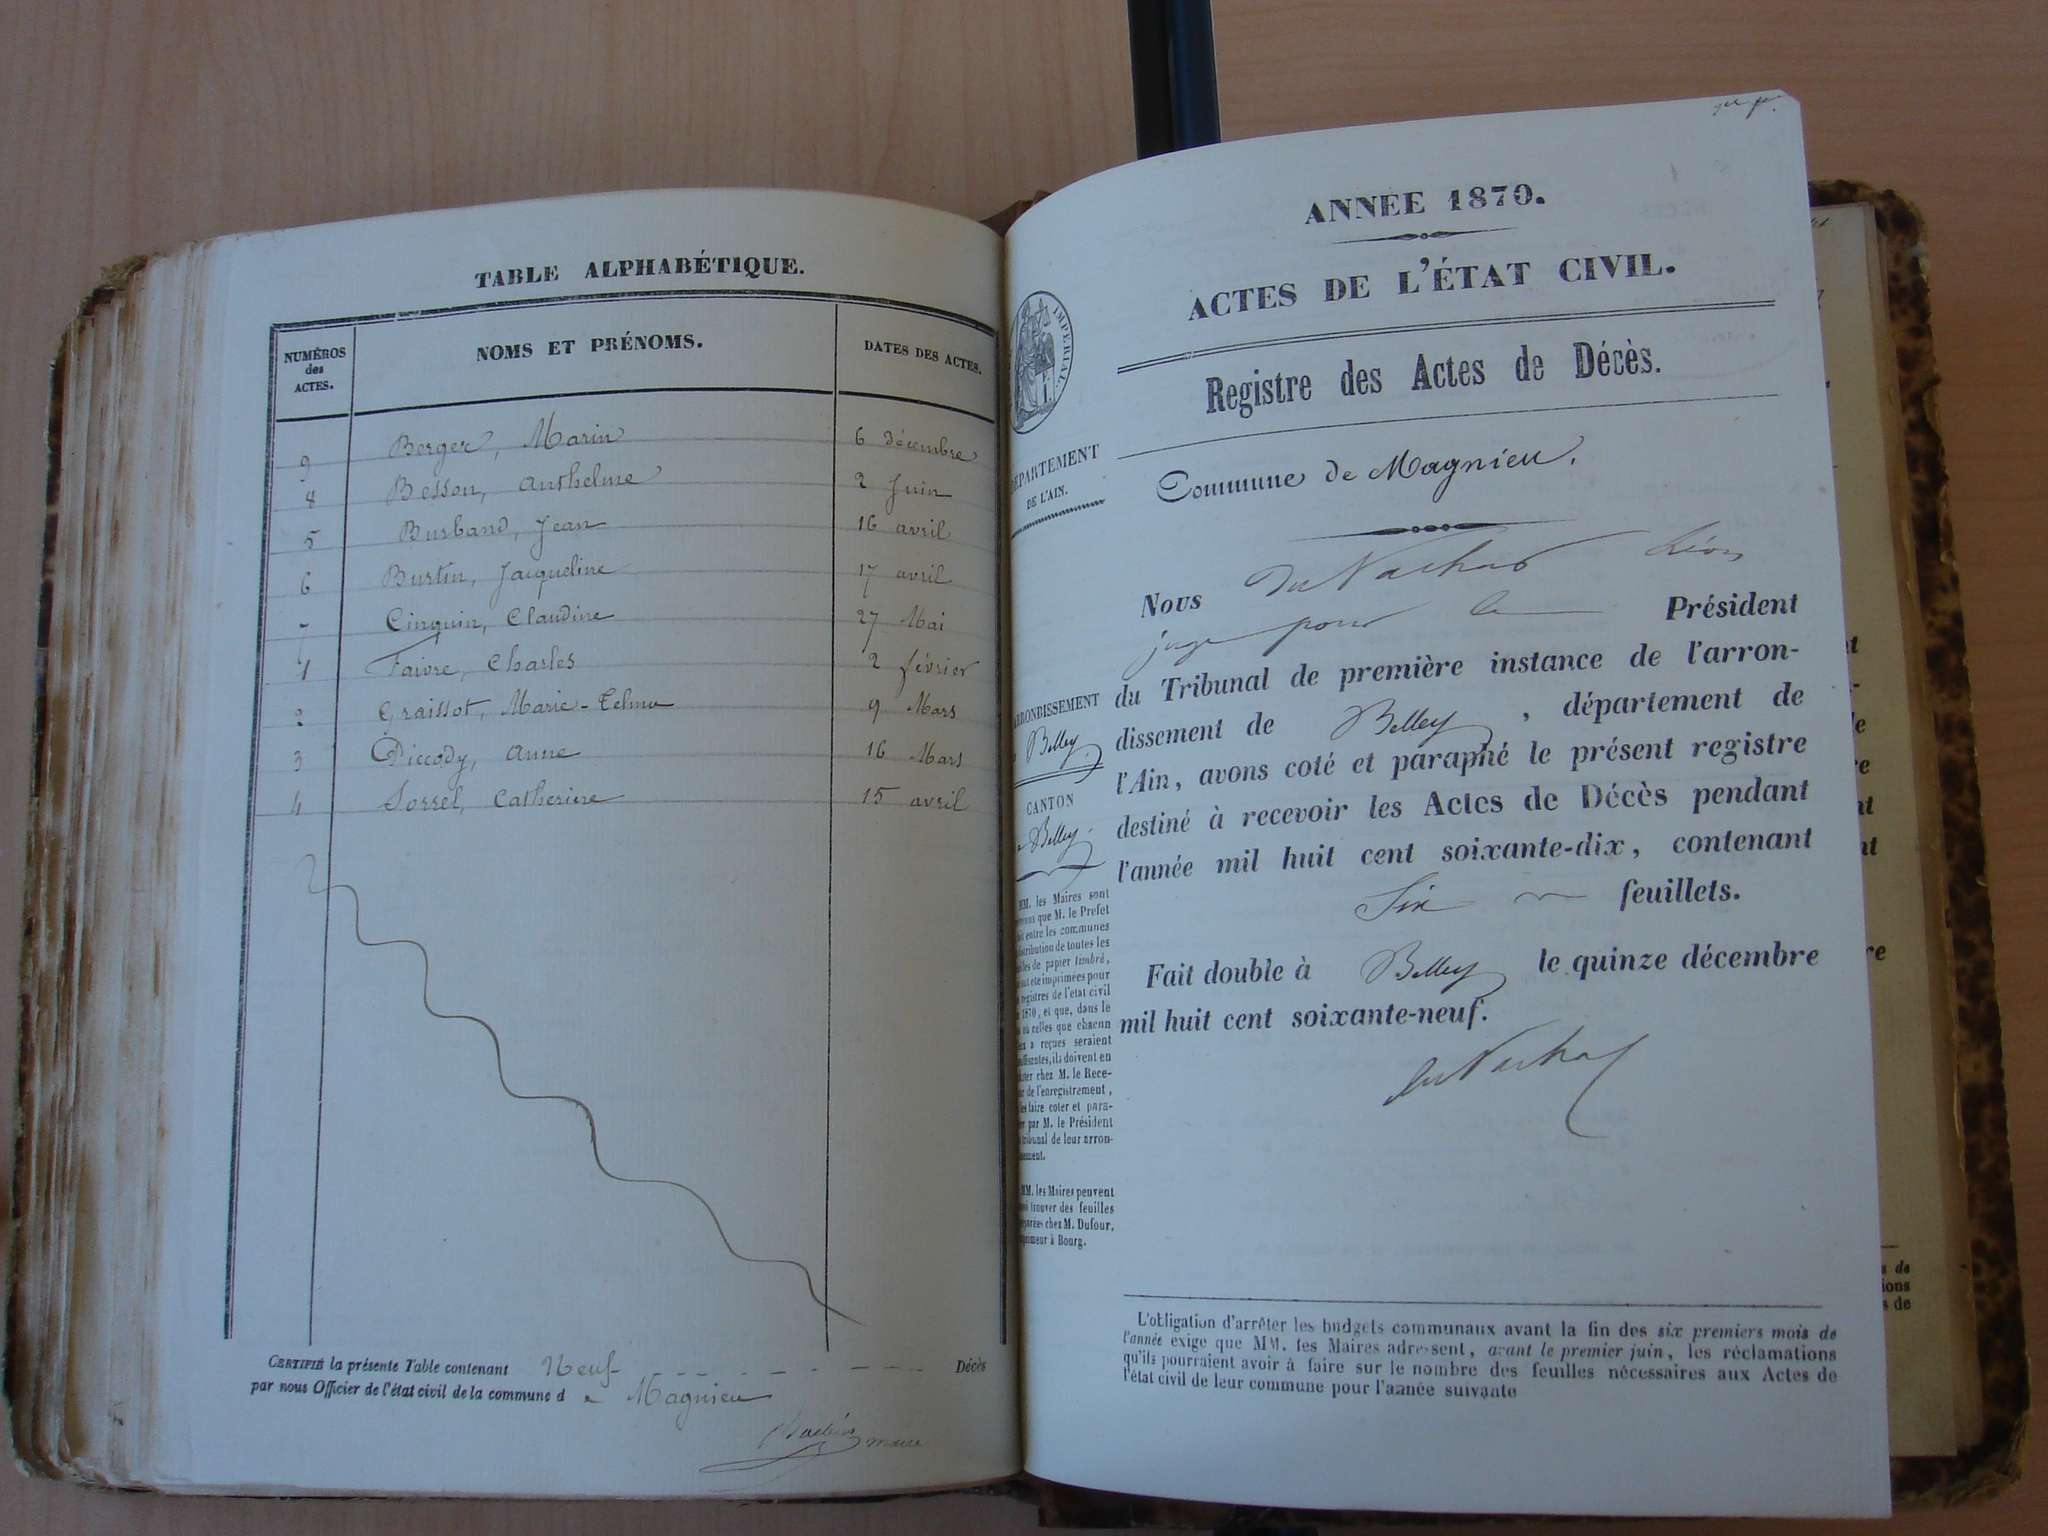 TABLE ALPHABÉTIQUE.
NUMÉROS
des
ACTES.
NOMS ET PRÉNOMS.
DATES DES ACTES.
9 Berger, Marin 6 décembre
8 Besson, Anthelme 2 Juin
5 Burband, Jean 16 avril
6 Burtin, Jacqueline 17 avril
7 Cinquin, Claudine 27 Mai
1 Faivre, Charles 2 février
2 Graissot, Marie-Telma 9 Mars
3 Piccody, Anne 16 Mars
4 Sorrel, Catherine 15 avril
CERTIFIÉ la présente Table contenant Neuf Décès
par nous Officier de l'état civil de la commune de Magnieu
maire
ANNÉE 1870.
ACTES DE L'ÉTAT CIVIL.
IMPERIAL.
Registre des Actes de Décès.
DÉPARTEMENT
DE L'AIN.
Commune de Magnieu.
Nous Du Nachad Léon
juge pour le Président
du Tribunal de première instance de l'arron-
dissement de Belley, département de
l'Ain, avons coté et paraphé le présent registre
destiné à recevoir les Actes de Décès pendant
l'année mil huit cent soixante-dix, contenant
Six feuillets.
Fait double à Belley le quinze décembre
mil huit cent soixante-neuf.
ARRONDISSEMENT
Belley
CANTON
Belley
MM. les Maires sont
que M. le Prefet
entre les communes
distribution de toutes les
de papier timbré,
ont été imprimées pour
registres de l'état civil
1870, et que, dans le
où celles que chacun
a reçues seraient
ils doivent en
chez M. le Rece-
de l'enregistrement,
les faire coter et para-
par M. le Président
tribunal de leur arron-
MM. les Maires peuvent
trouver des feuilles
chez M. Dufour,
imprimeur à Bourg.
L'obligation d'arrêter les budgets communaux avant la fin des six premiers mois de
l'année exige que MM. les Maires adressent, avant le premier juin, les réclamations
qu'ils pourraient avoir à faire sur le nombre des feuilles nécessaires aux Actes de
l'état civil de leur commune pour l'année suivante